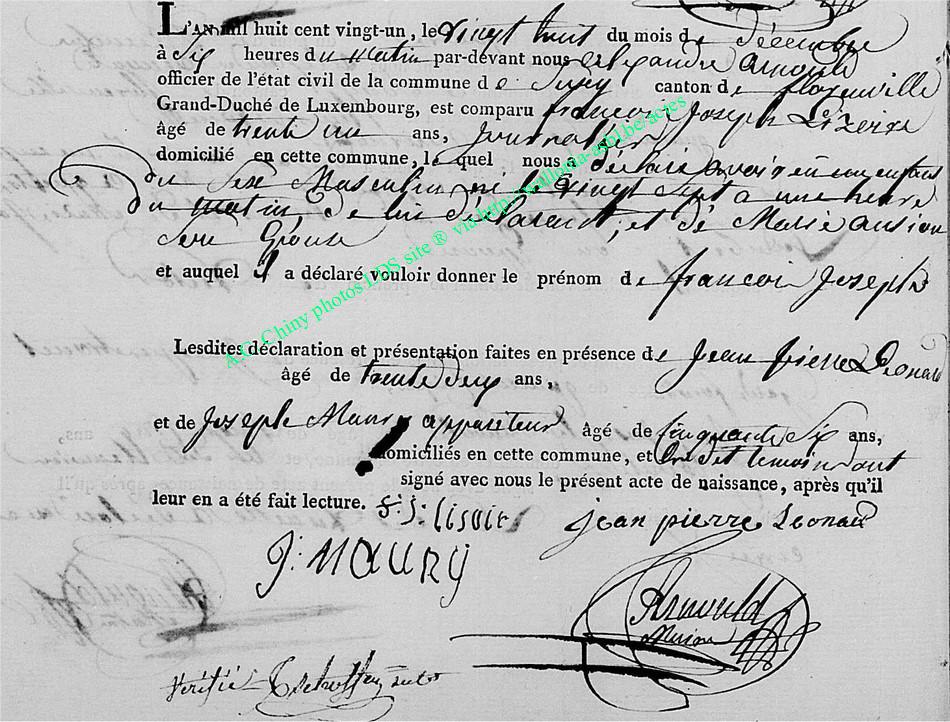 L'AN mil huit cent vingt-un, le vingt huit du mois de décembre
à six heures du matin par-devant nous alexandre arnould
officier de l'état civil de la commune de canton de florenville
Grand-Duché de Luxembourg, est comparu francois Joseph
âgé de trente un ans, Journalier
domicilié en cette commune, lequel nous a déclaré avoir eu un enfant
du Sexe Masculin né le vingt sept a une heure
du matin, de lui déclarant, et de Marie
Son Épouse
et auquel il a déclaré vouloir donner le prénom de francois Joseph
A.G. Chiny photos LDS site ® via http://wallonia-asbl.be/actes
Lesdites déclaration et présentation faites en présence de Jean pierre Leonard
âgé de trente deux ans,
et de Joseph Maury appariteur âgé de cinquante Six ans,
domiciliés en cette commune, et lesdit temoins ont
signé avec nous le présent acte de naissance, après qu'il
leur en a été fait lecture. f: j: lisoir
jean pierre Leonard
J: MAURY
Arnould
Verifié